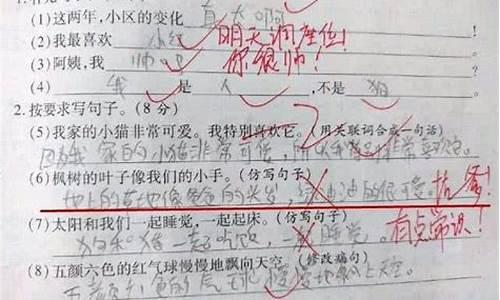 (1)这两年,小区的变化 真大啊
(2)我最喜欢 小红 明天调座位!
(3)阿姨,我 帅吗 你很帅!
(4) 我 是 人 ,不是 狗
2.按要求写句子。(8 分)
(5)我家的小猫非常可爱。我特别喜欢它。(用关联词合成一句话)
因为我家的小猫非常可爱,所以我 非常喜欢它。
(6)枫树的叶子像我们的小手。(仿写句子)
地上的草地像爸爸的头发, 绿油油的很 。 抗爹!
(7)太阳和我们一起睡觉,一起起床。(仿写句子)
狗和猪一起吃饭,一起睡觉。 有点常识!
(8)五颜六色的红气球慢慢地飘向天空。(修改病句)
五颜六色的气球慢慢地飘上天空。